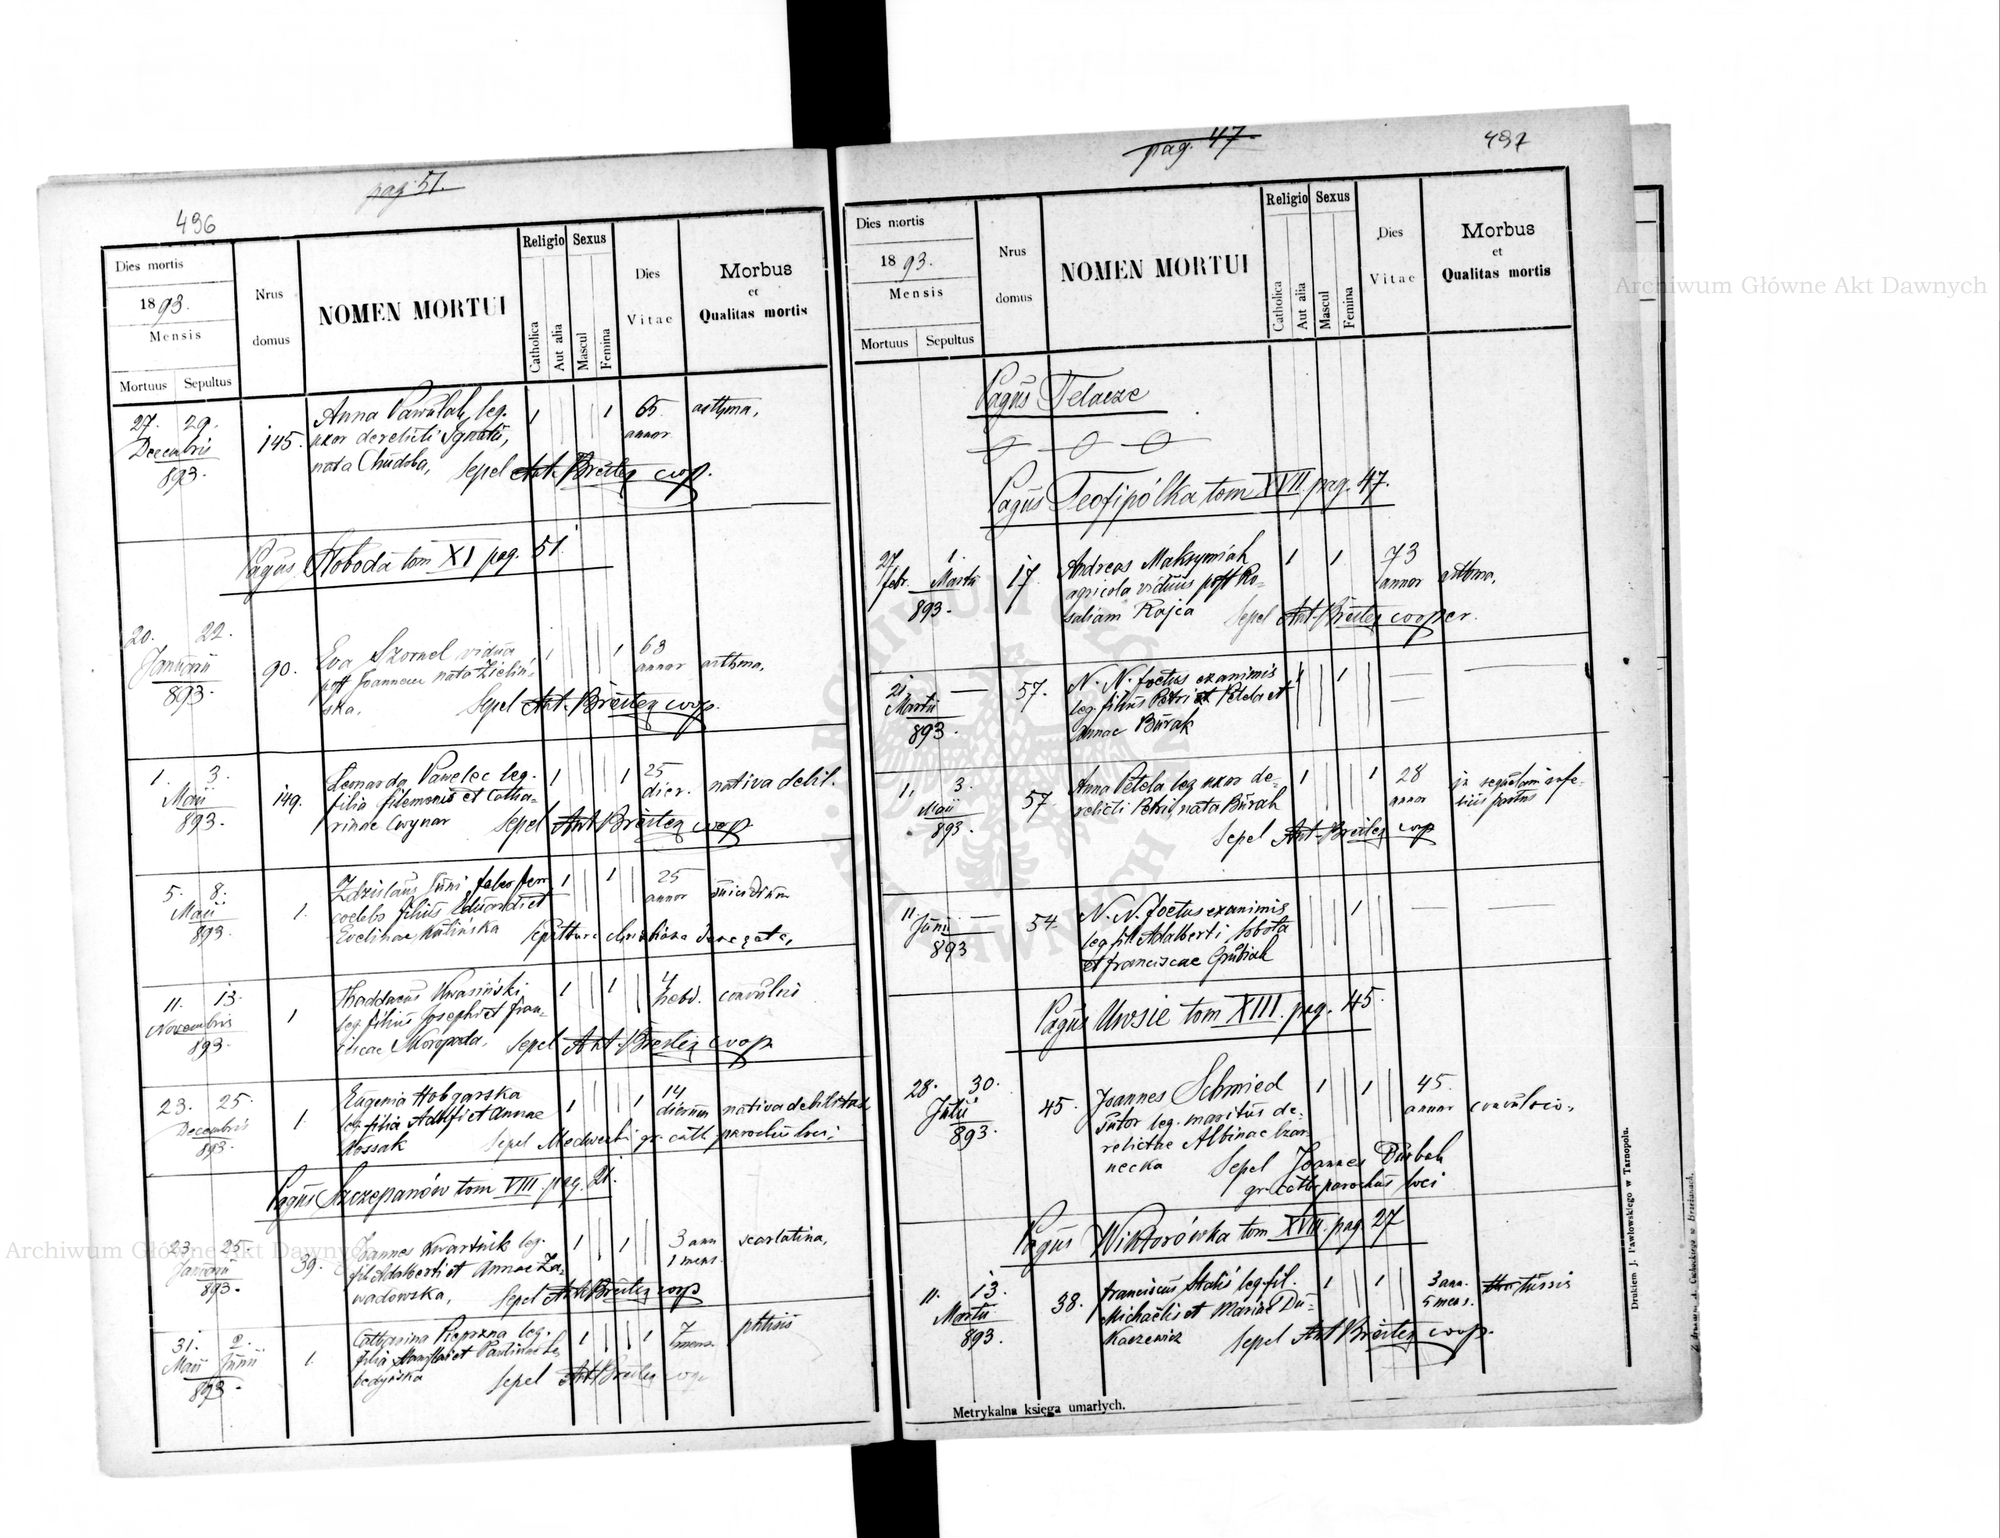 pag. 51.
496
Dies mortis
1893.
Mensis
Mortuus Sepultus
Nrus domus
NOMEN MORTUI
Religio
Catholica
Aut alia
Sexus
Mascul
Femina
Dies Vitae
Morbus
et
Qualitas mortis
27. 29. Decembris 893. 145. Anna Pawulak, leg. 1 1 65 annor asthma,
uxor derelicti Ignatii,
nata Chudoba, Sepel Ant. Breiter coop.
Pagus Słoboda tom XI pag. 51.
20. 22. Januarii 893. 90. Eva Szornel vidua 1 1 63 annor asthma,
post Joannem nata Zieliń-
ska. Sepel Ant. Breiter coop.
1. 3. Maii 893. 149. Leonarda Pawelec leg. 1 1 25 dier. nativa debil.
filia filemonis et Catha-
rinae Cwynar Sepel Ant Breiter coop
5. 8. Maii 893. 1. Zdzislaus faber 1 1 25 annor suicidium
coelebs filius Eduardi et
Evelinae Kalińska Sepultura christiana denegata,
11. 13. Novembris 893. 1 Thaddaeus Kwasiński 1 1 4 hebd. convulsii
leg. filius Josephi et Fran-
ciscae Sepel Ant. Breiter coop
23. 25. Decembris 893. 1. Eugenia 1 1 14 dierum nativa debilitas
leg. filia Adolfi et Annae
Kossak Sepel gr. cath parochus loci;
Pagus Szczepanów tom VIII. pag. 21.
23 25 Januarii 893. 39. Joannes Kwartnik leg. 1 1 3 ann 1 mens. scarlatina,
fil Adalberti et Annae Za-
wadowska, Sepel Ant. Breiter coop
31. 2. Maii Junii 893. 1. Catharina Pieprzna leg. 1 1 7 mens. phtisis
filia et Paulinae Le-
bedyńska Sepel Ant Breiter coop
pag. 47.
497
Dies mortis
1893.
Mensis
Mortuus Sepultus
Nrus domus
NOMEN MORTUI
Religio
Catholica
Aut alia
Sexus
Mascul
Femina
Dies Vitae
Morbus
et
Qualitas mortis
Pagus Telacze
Pagus Teofipólka tom XVII pag. 47.
27 febr. 1. Martii 893. 17. Andreas Maksymiak 1 1 73 annor asthma,
agricola viduus post Ro-
saliam Rajca Sepel Ant. Breiter cooper.
21 — Martii 893. 57. N. N. foetus exanimis 1 1 — —
leg. filius Petri Petela et
Annae Burak
1. 3. Maii 893. 57. Anna Petela leg uxor de- 1 1 28 annor in sequelam infe-
relicti Petri, nata Burak licis partus
Sepel Ant. Breiter coop
11 — Junii 893 54. N. N. foetus exanimis 1 — —
leg. fil. Adalberti Sobota
et Franciscae Grubiak
Pagus Ursie tom XIII. pag. 45.
28. 30. Julii 893. 45. Joannes Schmied 1 1 45. annor convulsio,
sutor leg. maritus de-
relictae Albinae Czar-
necka Sepel Joannes
gr. cath. parochus loci
Pagus Wiktorówka tom XVII. pag. 27
11. 13. Martii 893. 38. Franciscus leg. fil. 1 1 3 ann. 5 mens. tussis
Michaëlis et Mariae Du-
Sepel Ant Breiter coop.
Metrykalna księga umarłych.
Drukiem J. Pawłowskiego w Tarnopolu.
Archiwum Główne Akt Dawnych
Archiwum Główne Akt Dawnych